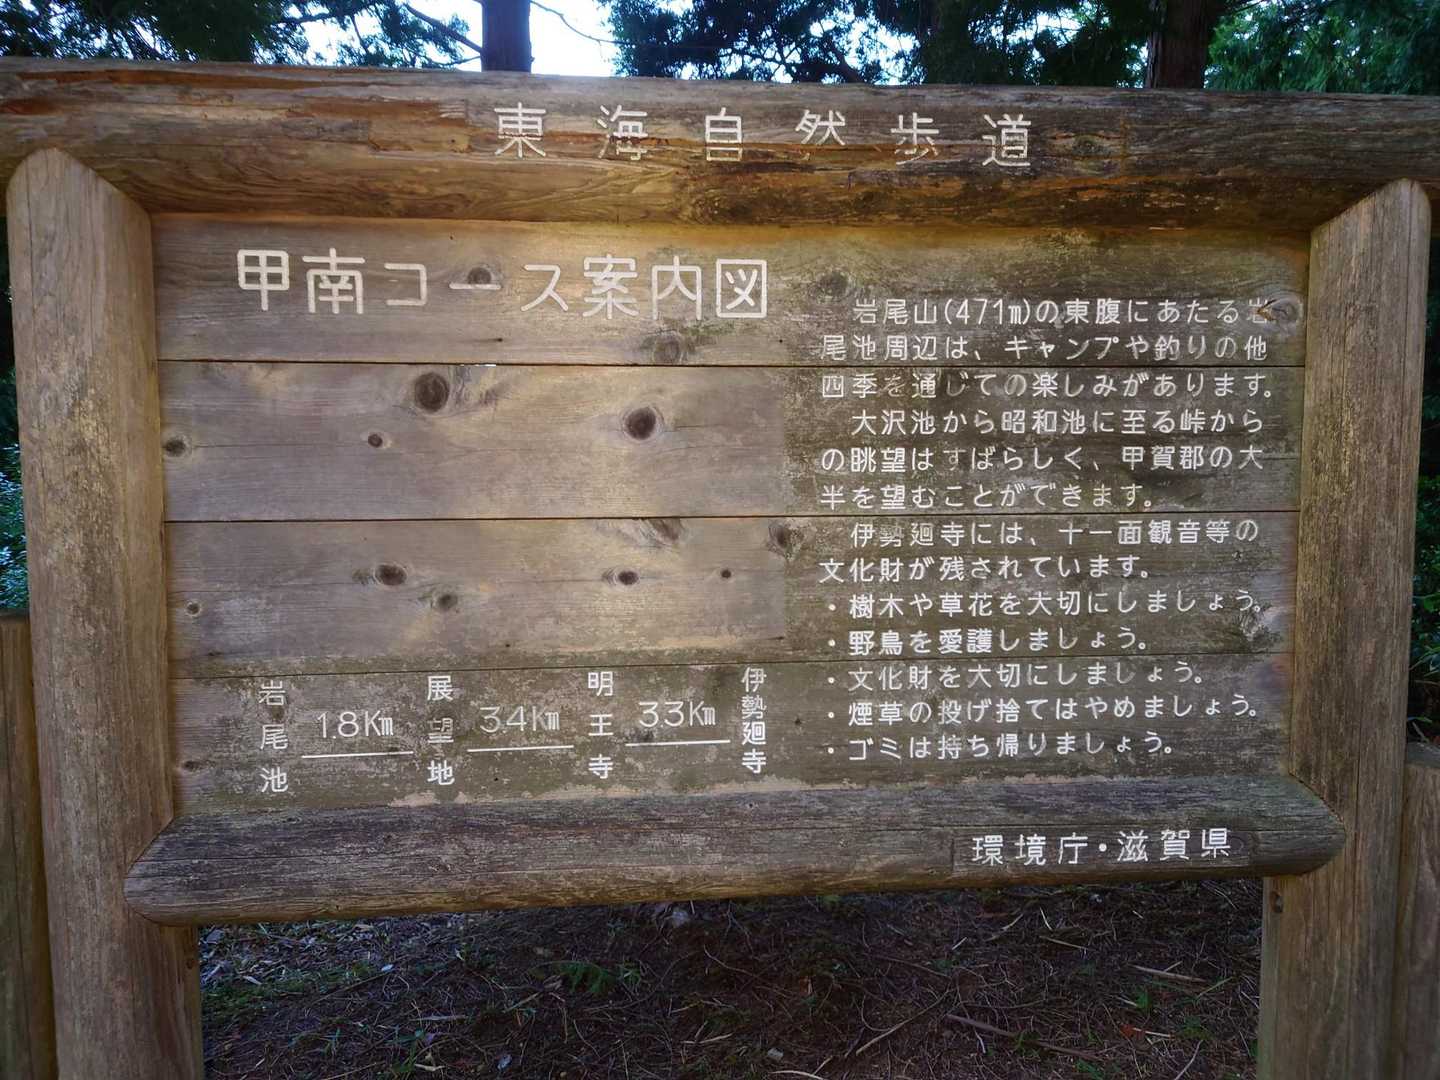 東海自然歩道
甲南コース案内図
岩尾山(471m)の東腹にあたる岩
尾池周辺は、キャンプや釣りの他
四季を通じての楽しみがあります。
大沢池から昭和池に至る峠から
の眺望はすばらしく、甲賀郡の大
半を望むことができます。
伊勢廻寺には、十一面観音等の
文化財が残されています。
・樹木や草花を大切にしましょう。
・野鳥を愛護しましょう。
・文化財を大切にしましょう。
・煙草の投げ捨てはやめましょう。
・ゴミは持ち帰りましょう。
岩尾池 1.8Km 展望地 3.4Km 明王寺 3.3Km 伊勢廻寺
環境庁・滋賀県